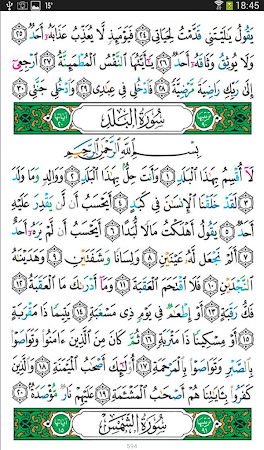 15° 18:45
يَقُولُ يَٰلَيْتَنِى قَدَّمْتُ لِحَيَاتِى ٢٤ فَيَوْمَئِذٍ لَّا يُعَذِّبُ عَذَابَهُۥٓ أَحَدٌ ٢٥
وَلَا يُوثِقُ وَثَاقَهُۥٓ أَحَدٌ ٢٦ يَٰٓأَيَّتُهَا ٱلنَّفْسُ ٱلْمُطْمَئِنَّةُ ٢٧ ٱرْجِعِىٓ
إِلَىٰ رَبِّكِ رَاضِيَةً مَّرْضِيَّةً ٢٨ فَٱدْخُلِى فِى عِبَٰدِى ٢٩ وَٱدْخُلِى جَنَّتِى ٣٠
سُورَةُ الْبَلَدِ
بِسْمِ ٱللَّهِ ٱلرَّحْمَٰنِ ٱلرَّحِيمِ
لَآ أُقْسِمُ بِهَٰذَا ٱلْبَلَدِ ١ وَأَنتَ حِلٌّۢ بِهَٰذَا ٱلْبَلَدِ ٢ وَوَالِدٍ وَمَا وَلَدَ
٣ لَقَدْ خَلَقْنَا ٱلْإِنسَٰنَ فِى كَبَدٍ ٤ أَيَحْسَبُ أَن لَّن يَقْدِرَ عَلَيْهِ
أَحَدٌ ٥ يَقُولُ أَهْلَكْتُ مَالًا لُّبَدًا ٦ أَيَحْسَبُ أَن لَّمْ يَرَهُۥٓ أَحَدٌ
٧ أَلَمْ نَجْعَل لَّهُۥ عَيْنَيْنِ ٨ وَلِسَانًا وَشَفَتَيْنِ ٩ وَهَدَيْنَٰهُ
ٱلنَّجْدَيْنِ ١٠ فَلَا ٱقْتَحَمَ ٱلْعَقَبَةَ ١١ وَمَآ أَدْرَىٰكَ مَا ٱلْعَقَبَةُ ١٢
فَكُّ رَقَبَةٍ ١٣ أَوْ إِطْعَٰمٌ فِى يَوْمٍ ذِى مَسْغَبَةٍ ١٤ يَتِيمًا ذَا مَقْرَبَةٍ
١٥ أَوْ مِسْكِينًا ذَا مَتْرَبَةٍ ١٦ ثُمَّ كَانَ مِنَ ٱلَّذِينَ ءَامَنُوا۟ وَتَوَاصَوْا۟
بِٱلصَّبْرِ وَتَوَاصَوْا۟ بِٱلْمَرْحَمَةِ ١٧ أُو۟لَٰٓئِكَ أَصْحَٰبُ ٱلْمَيْمَنَةِ ١٨ وَٱلَّذِينَ
كَفَرُوا۟ بِـَٔايَٰتِنَا هُمْ أَصْحَٰبُ ٱلْمَشْـَٔمَةِ ١٩ عَلَيْهِمْ نَارٌ مُّؤْصَدَةٌۢ ٢٠
سُورَةُ الشَّمْسِ
594